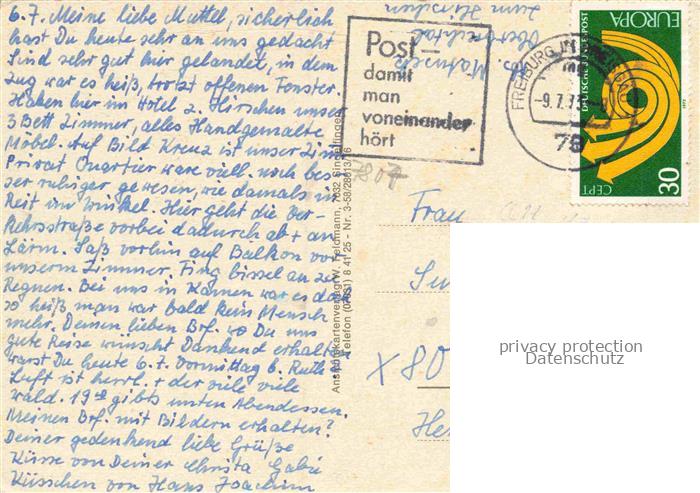 6.7. Meine liebe Muttel, sicherlich
hast Du heute sehr an uns gedacht
Sind sehr gut hier gelandet, in dem
Zug war es heiß, trotzt offenen Fenster.
Haben hier im Hotel z. Hirschen unser
3 Bett Zimmer, alles Handgemalte
Möbel. Auf Bild Kreuz ist unser Zim
Privat Quartier ware viell. noch bes-
ser ruhiger gewesen, wie damals in
Reit im Winkel. Hier geht die Ver-
kehrsstraße vorbei dadurch ab + an
Lärm. Saß vorhin auf Balkon vor
unserm Zimmer. Fing bissel an zu
Regnen. Bei uns in Kamen war es doch
so heiß man war bald kein Mensch
mehr. Deinen lieben Brf. wo Du uns
gute Reise wünscht Dankend erhalten
warst Du heute 6.7. Vormittag b. Ruth?
Luft ist herrl. + der viel viele
Wald. 19°° gibts unten Abendessen.
Meinen Brf. mit Bildern erhalten?
Deiner gedenkend liebe Grüße
Küsse von Deiner Christa Gabi
Küsschen von Hans Joachim
zum Hirschen
Oberprechtal
Post-
damit
man
voneinander
hört
FREIBURG IM BREISGAU
-9.7.73
78
DEUTSCHE BUNDESPOST
EUROPA
CEPT
30
1973
Ansichtskartenverlag W. Feldmann, 7032 Sindelfingen
Telefon (07031) 8 41 25 - Nr. 3-58/28613/76
7807
Frau
X 80
privacy protection
Datenschutz